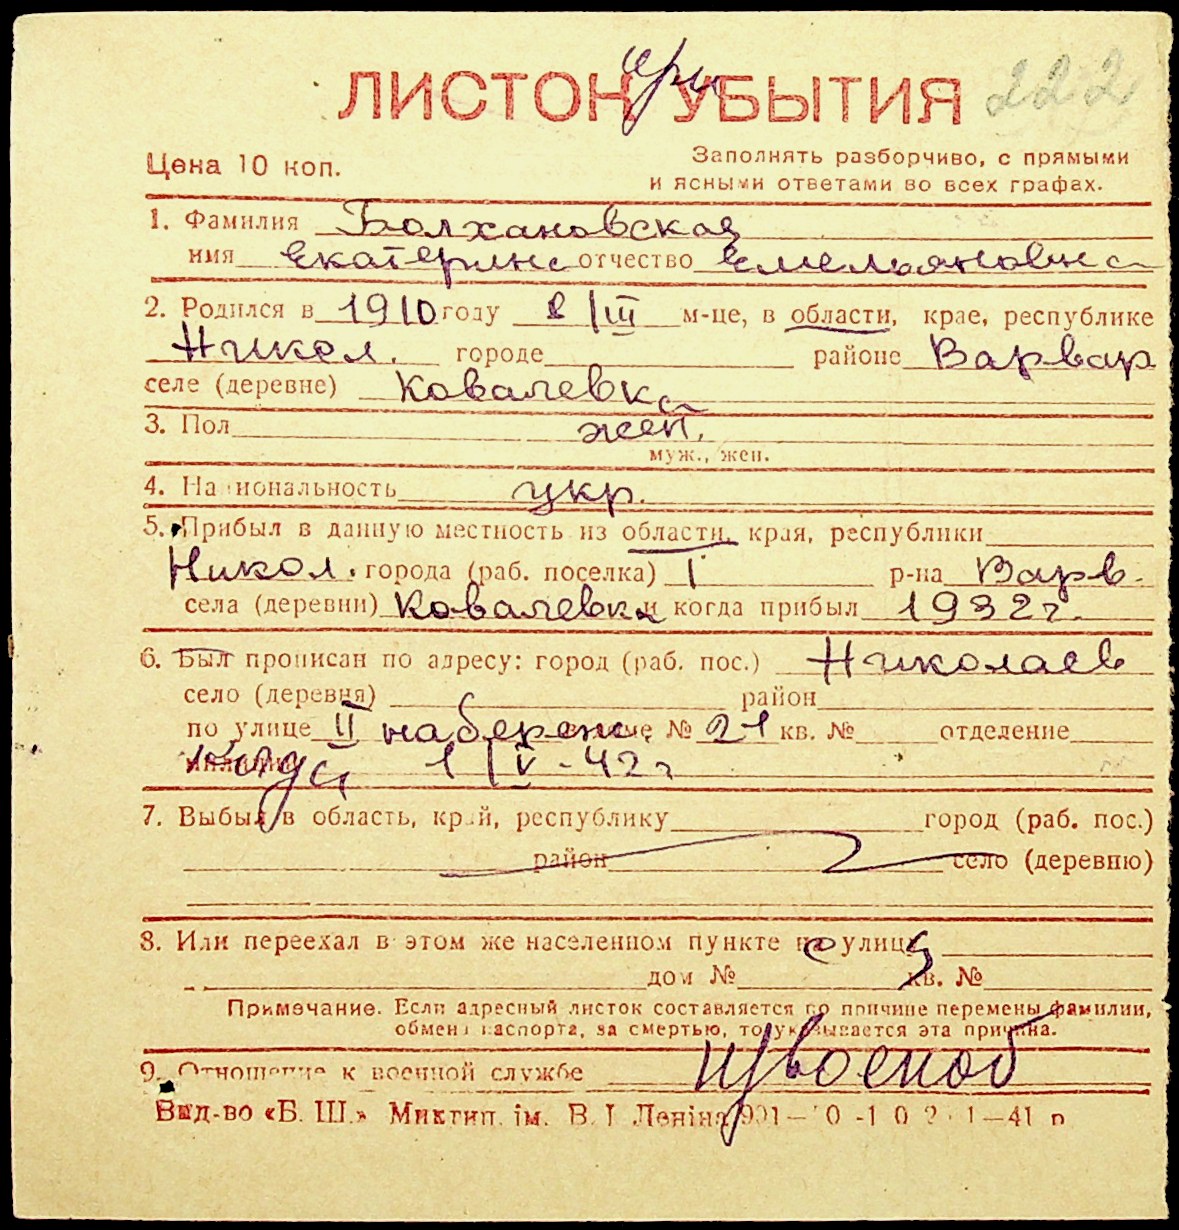 ЛИСТОК при УБЫТИЯ 222
Цена 10 коп.
Заполнять разборчиво, с прямыми
и ясными ответами во всех графах.
1. Фамилия Болхановская
имя Екатерина отчество Емельяновна
2. Родился в 1910 году в /III м-це, в области, крае, республике
Никол. городе районе Варвар
селе (деревне) Ковалевка
3. Пол жен.
муж., жен.
4. Национальность укр.
5. Прибыл в данную местность из области, края, республики
Никол. города (раб. поселка) р-на Варв.
села (деревни) Ковалевка и когда прибыл 1932 г.
6. Был прописан по адресу: город (раб. пос.) Николаев
село (деревня) район
по улице II набережн. № 21 кв. № отделение
милиции куда 1/IV-42 г
7. Выбыл в область, край, республику город (раб. пос.)
район село (деревню)
8. Или переехал в этом же населенном пункте на улицу
дом № кв. №
Примечание. Если адресный листок составляется по причине перемены фамилии,
обмена паспорта, за смертью, то указывается эта причина.
9. Отношение к военной службе
Вид-во «Б. Ш.» Миктип. ім. В. І. Леніна 41 р